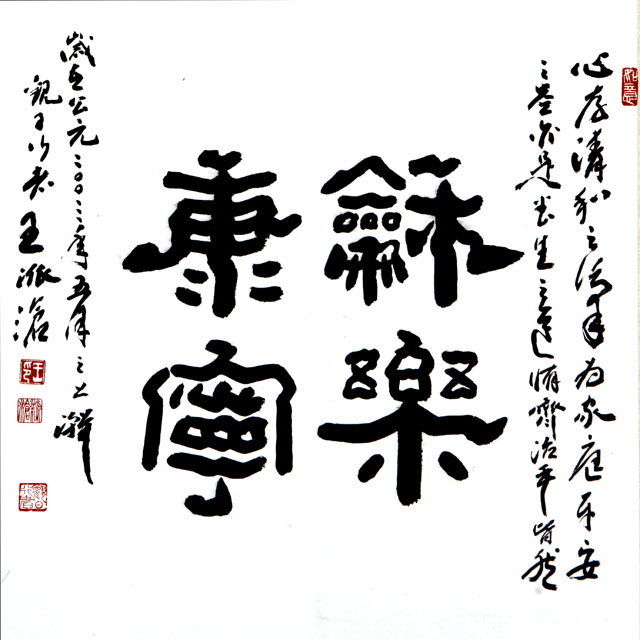 如意
心存 和之 為家庭平安
之基亦是 生之道脩齊治平皆然
龢樂
康寧
歲在公元二〇〇三年五月之上澣
王 滄